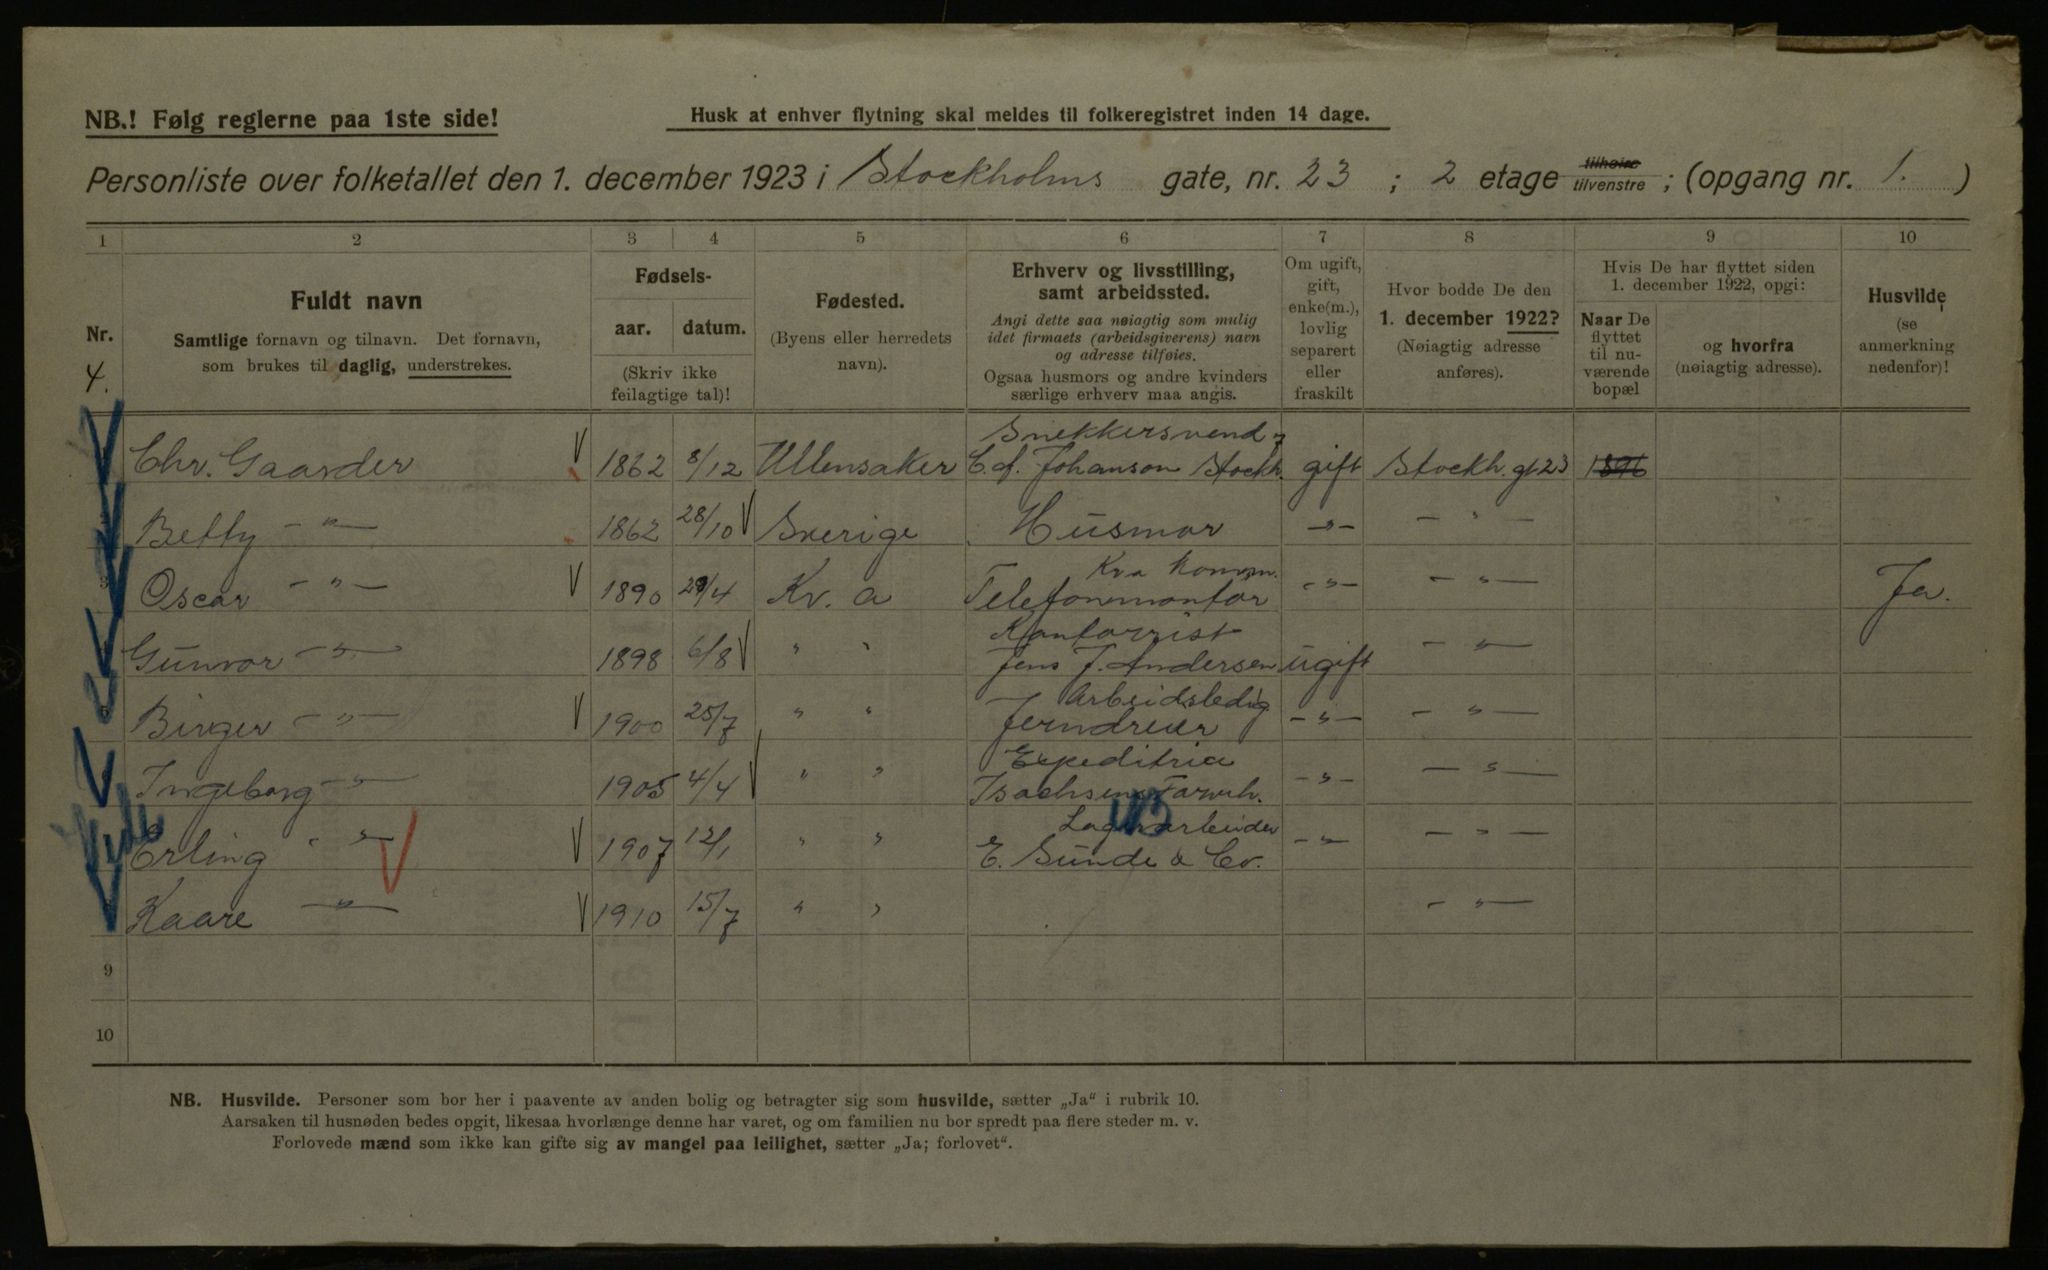 NB.! Følg reglerne paa 1ste side!
Husk at enhver flytning skal meldes til folkeregistret inden 14 dage.
Personliste over folketallet den 1. december 1923 i Stockholms gate, nr. 23 ; 2 etage tilhøire tilvenstre ; (opgang nr. 1. )
1 2 3 4 5 6 7 8 9 10
Nr.
4.
Fuldt navn
Samtlige fornavn og tilnavn. Det fornavn,
som brukes til daglig, understrekes.
Fødsels-
aar. datum.
(Skriv ikke
feilagtige tal)!
Fødested.
(Byens eller herredets
navn).
Erhverv og livsstilling,
samt arbeidssted.
Angi dette saa nøiagtig som mulig
idet firmaets (arbeidsgiverens) navn
og adresse tilføies.
Ogsaa husmors og andre kvinders
særlige erhverv maa angis.
Om ugift,
gift,
enke(m.),
lovlig
separert
eller
fraskilt
Hvor bodde De den
1. december 1922?
(Nøiagtig adresse
anføres).
Hvis De har flyttet siden
1. december 1922, opgi:
Naar De
flyttet
til nu-
værende
bopæl
og hvorfra
(nøiagtig adresse).
Husvilde
(se
anmerkning
nedenfor)!
Snekkersvend
Chr. Gaarder 1862 8/12 Ullensaker C. A. Johanson Stockh. gift Stockh. gt 23 1896
Betty - " - 1862 28/10 Sverige Husmor - " - - " -
Kra Komm.
Oscar - " - 1890 29/4 Kr. a Telefonmontør - " - - " - Ja.
Kontorist
Gunvor - " - 1898 6/8 " " Jens J. Andersen ugift - " -
Arbeidsledig
Birger - " - 1900 25/7 " " Jerndreier - " - - " -
Expeditrice
Ingeborg - " - 1905 4/4 " " Isachsens Farveh. - " - - " -
Lagerarbeider
Erling - " - 1907 12/1 " " E. Sunde & Co. - " - - " -
Kaare - " - 1910 15/7 " " - " -
9
10
NB. Husvilde. Personer som bor her i paavente av anden bolig og betragter sig som husvilde, sætter „Ja“ i rubrik 10.
Aarsaken til husnøden bedes opgit, likesaa hvorlænge denne har varet, og om familien nu bor spredt paa flere steder m. v.
Forlovede mænd som ikke kan gifte sig av mangel paa leilighet, sætter „Ja; forlovet“.